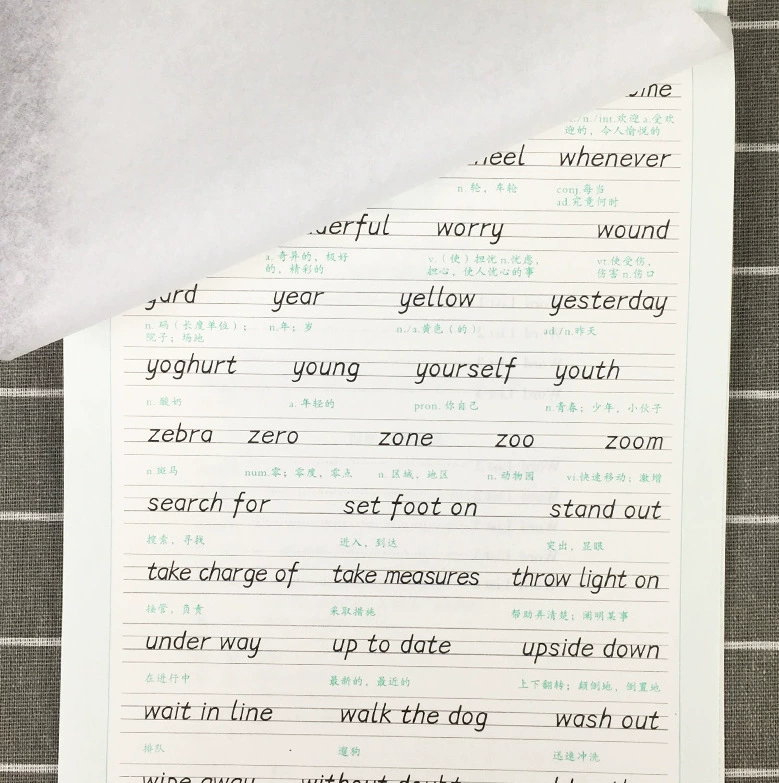 v./n./int.欢迎 a.受欢
迎的，令人愉悦的
whenever
n.轮，车轮 conj.每当
ad.究竟何时
worry wound
a.奇异的，极好 v.（使）担忧 n.忧虑， vt.使受伤，
的，精彩的 担心，使人忧心的事 伤害 n.伤口
yard year yellow yesterday
n.码（长度单位）； n.年；岁 n./a.黄色（的） ad./n.昨天
院子；场地
yoghurt young yourself youth
n.酸奶 a.年轻的 pron.你自己 n.青春；少年，小伙子
zebra zero zone zoo zoom
n.斑马 num.零；零度，零点 n.区域，地区 n.动物园 vi.快速移动；激增
search for set foot on stand out
搜索，寻找 进入，到达 突出，显眼
take charge of take measures throw light on
接管，负责 采取措施 帮助弄清楚；阐明某事
under way up to date upside down
在进行中 最新的，最近的 上下翻转；颠倒地，倒置地
wait in line walk the dog wash out
排队 遛狗 迅速冲洗
wipe away without doubt